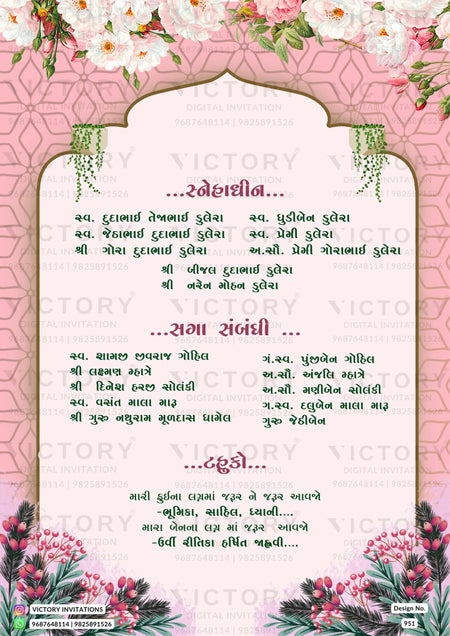 VICTORY
DIGITAL INVITATION
9687648114 | 9825891526
...સ્નેહાધીન...
સ્વ. દુદાભાઈ તેજાભાઈ ડુલેરા સ્વ. ધુડીબેન ડુલેરા
સ્વ. જેઠાભાઈ દુદાભાઈ ડુલેરા સ્વ. પ્રેમી ડુલેરા
શ્રી ગોરા દુદાભાઈ ડુલેરા અ.સૌ. પ્રેમી ગોરાભાઈ ડુલેરા
શ્રી બીજલ દુદાભાઈ ડુલેરા
શ્રી નરેન મોહન ડુલેરા
...સગા સંબંધી ...
સ્વ. શામજી જીવરાજ ગોહિલ ગં.સ્વ. પુંજીબેન ગોહિલ
શ્રી લક્ષ્મણ મ્હાત્રે અ.સૌ. અંજલિ મ્હાત્રે
શ્રી દિનેશ હરજી સોલંકી અ.સૌ. મણીબેન સોલંકી
સ્વ. વસંત માલા મારૂ ગ.સ્વ. દલુબેન માલા મારૂ
શ્રી ગુરુ નથુરામ મૂળદાસ ધામેલ ગુરુ જેઠીબેન
...ટહુકો...
મારી ફુઈના લગ્નમાં જરૂર ને જરૂર આવજો
-ભૂમિકા, સાહિલ, ધ્યાની....
મારા બેનના લગ્ન માં જરૂર આવજો
-ઉર્વી રીતિકા હર્ષિત જાહ્નવી....
VICTORY INVITATIONS
9687648114 | 9825891526
Design No.
951